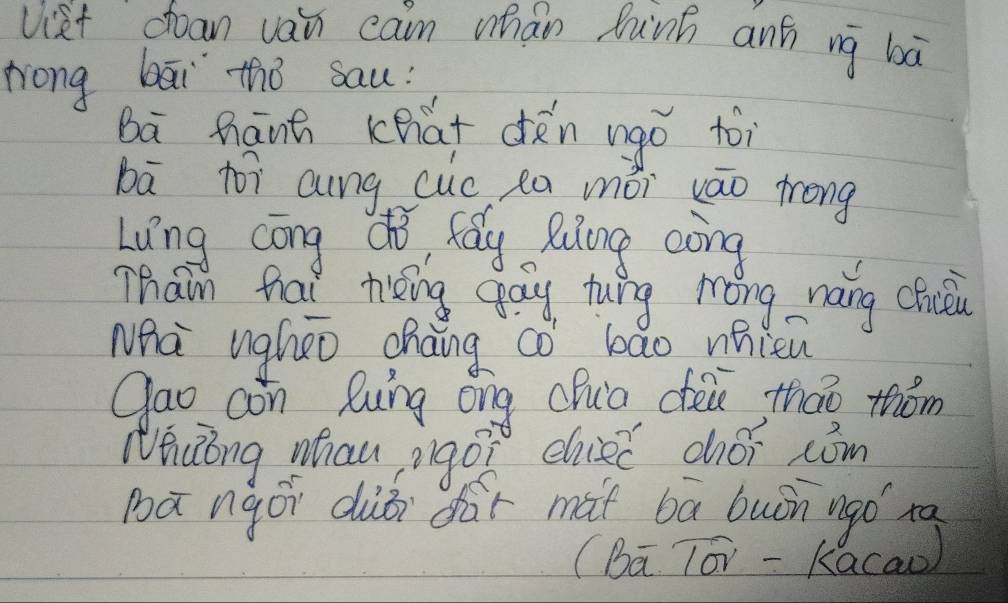 Viết đoạn văn cảm nhận hình ảnh ng bà
trong bài thơ sau:
Bà hành khất đến ngõ tôi
bà tôi cung cúc ra mời vào trong
Lưng còng đỡ lấy lưng còng
Thầm hai tiếng gậy tụng trong nắng chiều
Nhà nghèo chẳng có bao nhiêu
Gạo còn lưng ống chia đều thảo thơm
Nhường nhau, ngồi chiếc chổi rơm
Bà ngồi dưới đất mắt bà buồn ngó ra
(Bà Tôi - Kacao)